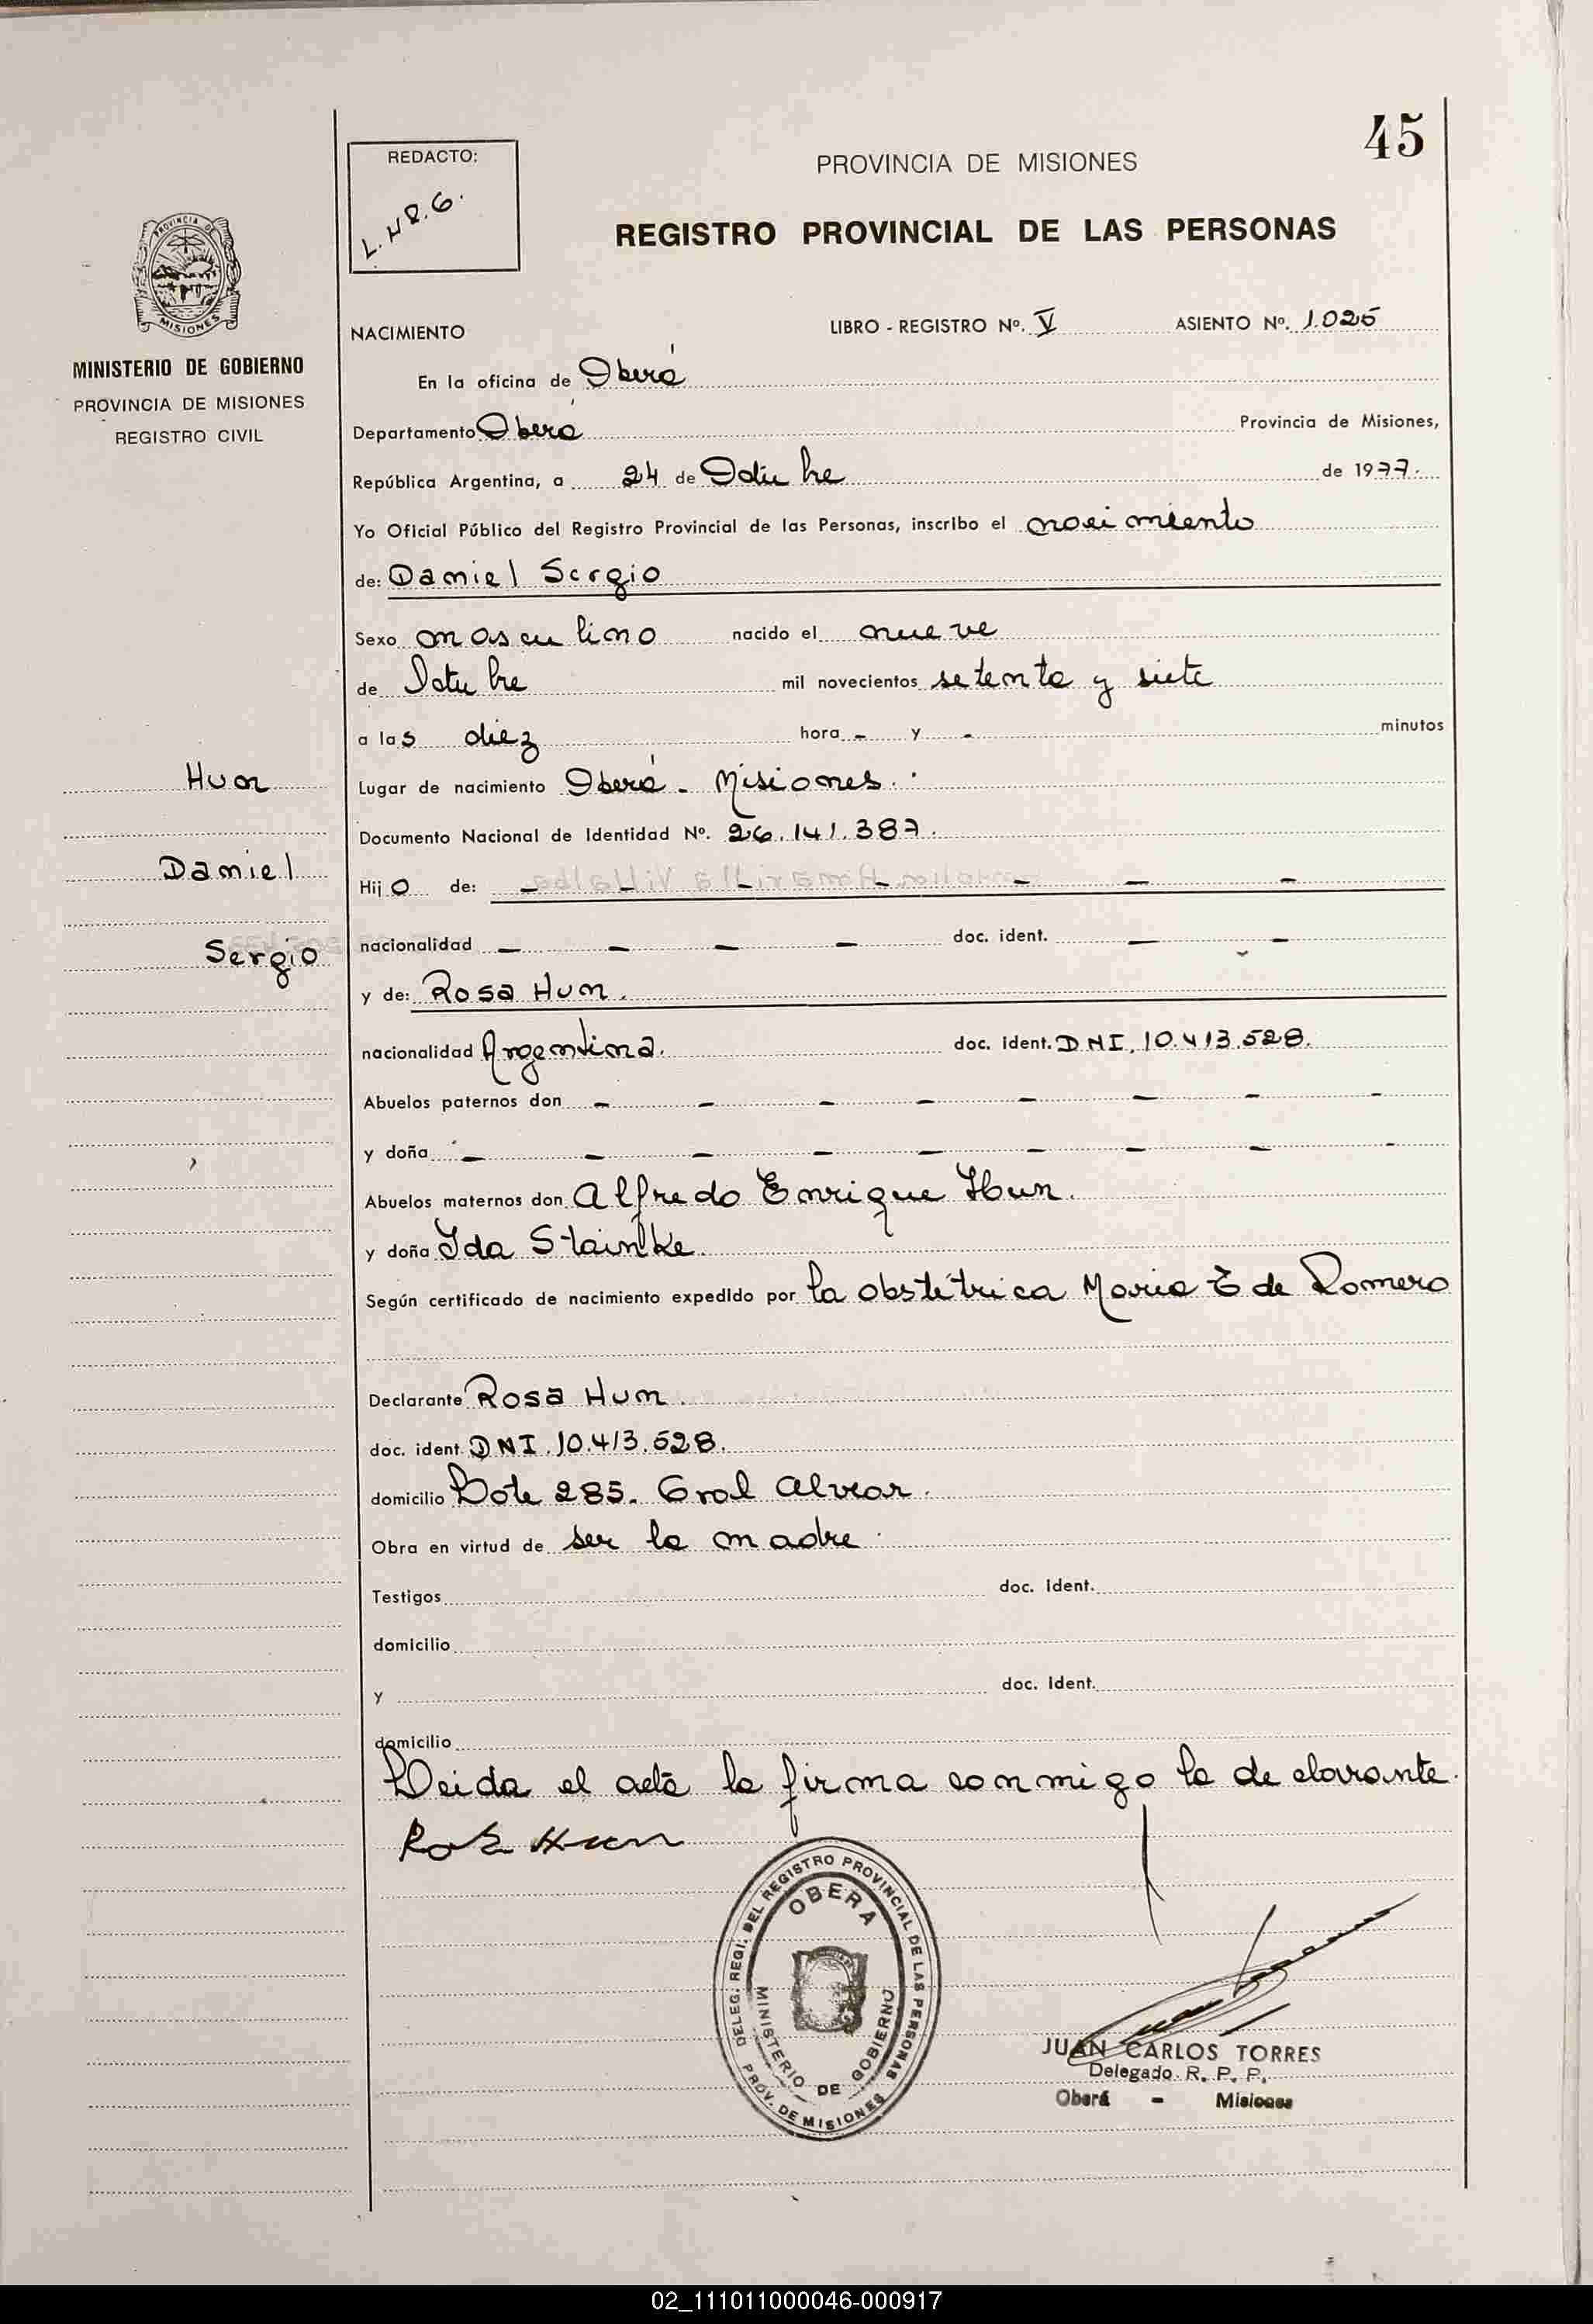 45
REDACTO:
L.H.R.G.
PROVINCIA DE MISIONES
REGISTRO PROVINCIAL DE LAS PERSONAS
PROVINCIA DE
MISIONES
MINISTERIO DE GOBIERNO
PROVINCIA DE MISIONES
REGISTRO CIVIL
NACIMIENTO LIBRO - REGISTRO Nº. V ASIENTO Nº. 1.025
En la oficina de Oberá
Departamento Oberá Provincia de Misiones,
República Argentina, a 24 de Octubre de 1977.
Yo Oficial Público del Registro Provincial de las Personas, inscribo el nacimiento
de: Daniel Sergio
Sexo masculino nacido el nueve
de Octubre mil novecientos setenta y siete
a las diez hora - y - minutos
Hun
Daniel
Sergio
Lugar de nacimiento Oberá - Misiones.
Documento Nacional de Identidad Nº. 26.141.387.
Hijo de: - - - - - - -
nacionalidad - - - - doc. ident. - -
y de: Rosa Hun.
nacionalidad Argentina. doc. ident. DNI. 10.413.528.
Abuelos paternos don - - - - - - - -
y doña - - - - - - - -
Abuelos maternos don Alfredo Enrique Hun.
y doña Ida Stainke.
Según certificado de nacimiento expedido por la obstétrica Maria E de Romero
Declarante Rosa Hun.
doc. ident. DNI. 10.413.528.
domicilio Lote 285. Gral Alvear.
Obra en virtud de ser la madre.
Testigos doc. Ident.
domicilio
y doc. Ident.
domicilio
Leida el acta la firma conmigo la declarante.
Rosa Hun
DELEG. REGI. DEL REGISTRO PROVINCIAL DE LAS PERSONAS
OBERA
MINISTERIO DE GOBIERNO
PROV. DE MISIONES
JUAN CARLOS TORRES
Delegado R. P. P.
Oberá - Misiones
02_111011000046-000917